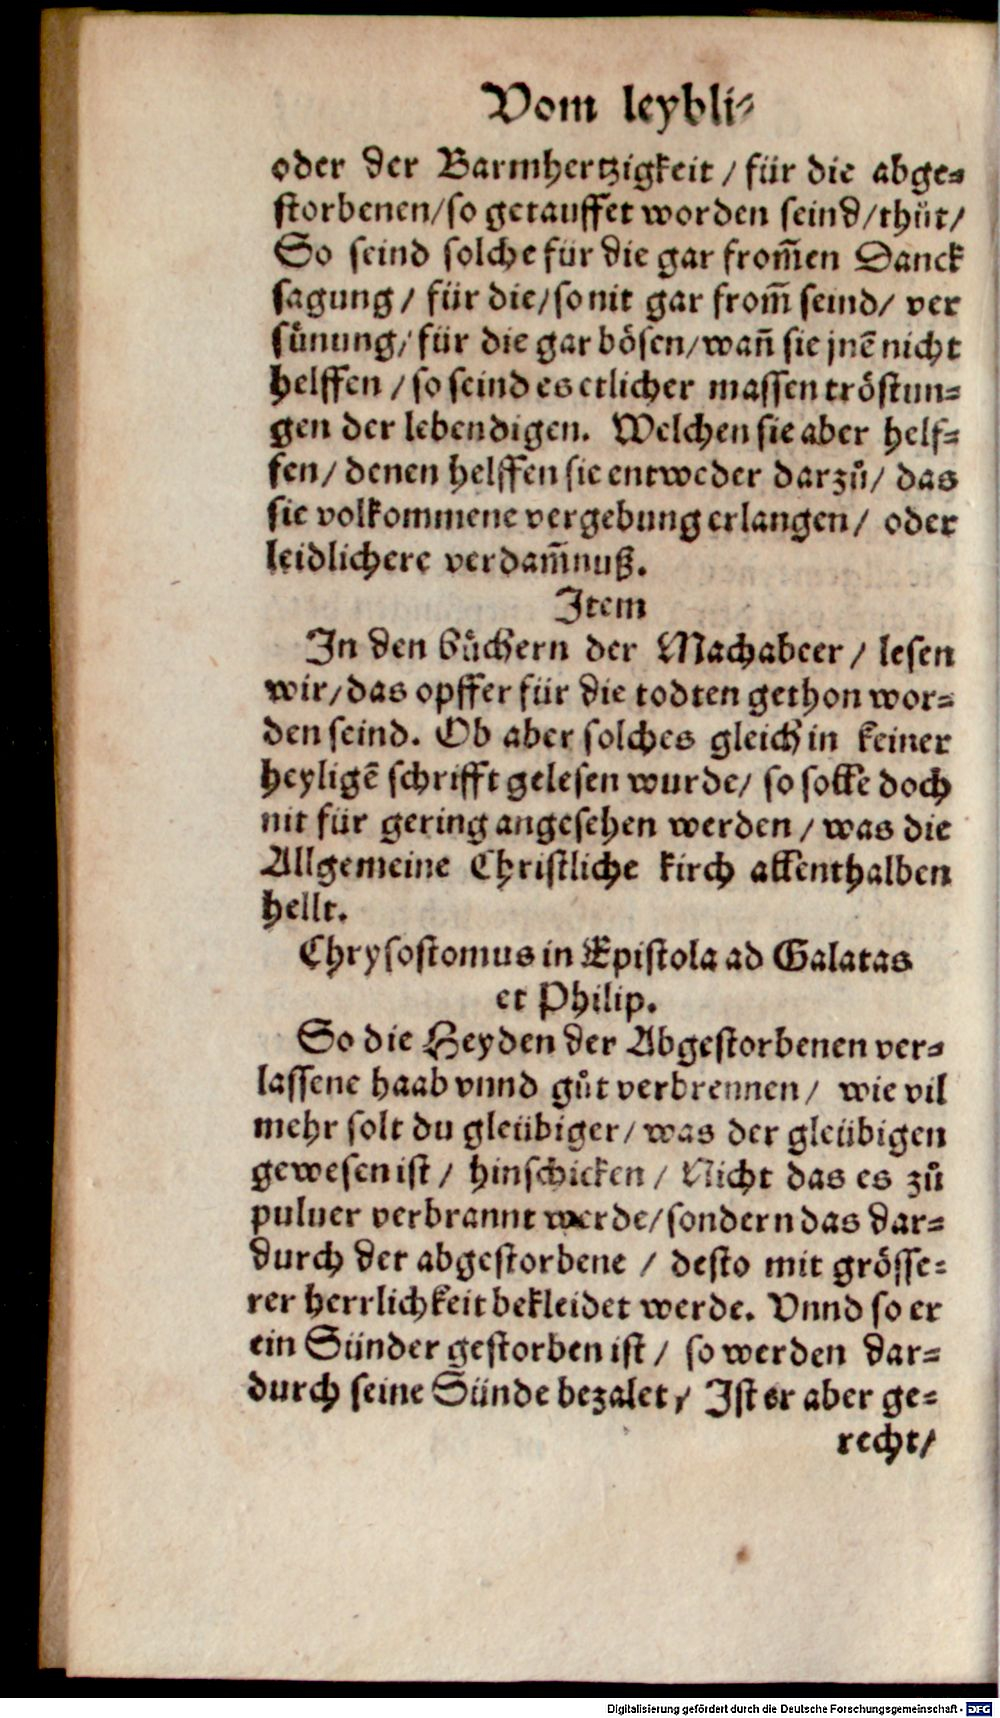 Vom leybli⸗
oder der Barmhertzigkeit / für die abge⸗
storbenen/so getauffet worden seind/thůt/
So seind solche für die gar from̃en Danck
sagung / für die/so nit gar from̃ seind/ ver
sůnung/ für die gar bösen/wañ sie jnẽ nicht
helffen / so seind es etlicher massen tröstun⸗
gen der lebendigen. Welchen sie aber helf⸗
fen/ denen helffen sie entweder darzů/ das
sie volkommene vergebung erlangen/ oder
leidlichere verdam̃nuß.
Item
In den Bůchern der Machabeer / lesen
wir/das opffer für die todten gethon wor⸗
den seind. Ob aber solches gleich in keiner
heyligẽ schrifft gelesen wurde/ so solle doch
nit für gering angesehen werden / was die
Allgemeine Christliche kirch allenthalben
hellt.
Chrysostomus in Epistola ad Galatas
et Philip.
So die Heyden der Abgestorbenen ver⸗
lassene haab vnnd gůt verbrennen/ wie vil
mehr solt du gleübiger/ was der gleübigen
gewesen ist / hinschicken / Nicht das es zů
puluer verbrannt werde/sondern das dar⸗
durch der abgestorbene / desto mit grösse⸗
rer herrlichkeit bekleidet werde. Vnnd so er
ein Sünder gestorben ist / so werden dar⸗
durch seine Sünde bezalet / Ist er aber ge⸗
recht/
Digitalisierung gefördert durch die Deutsche Forschungsgemeinschaft - DFG